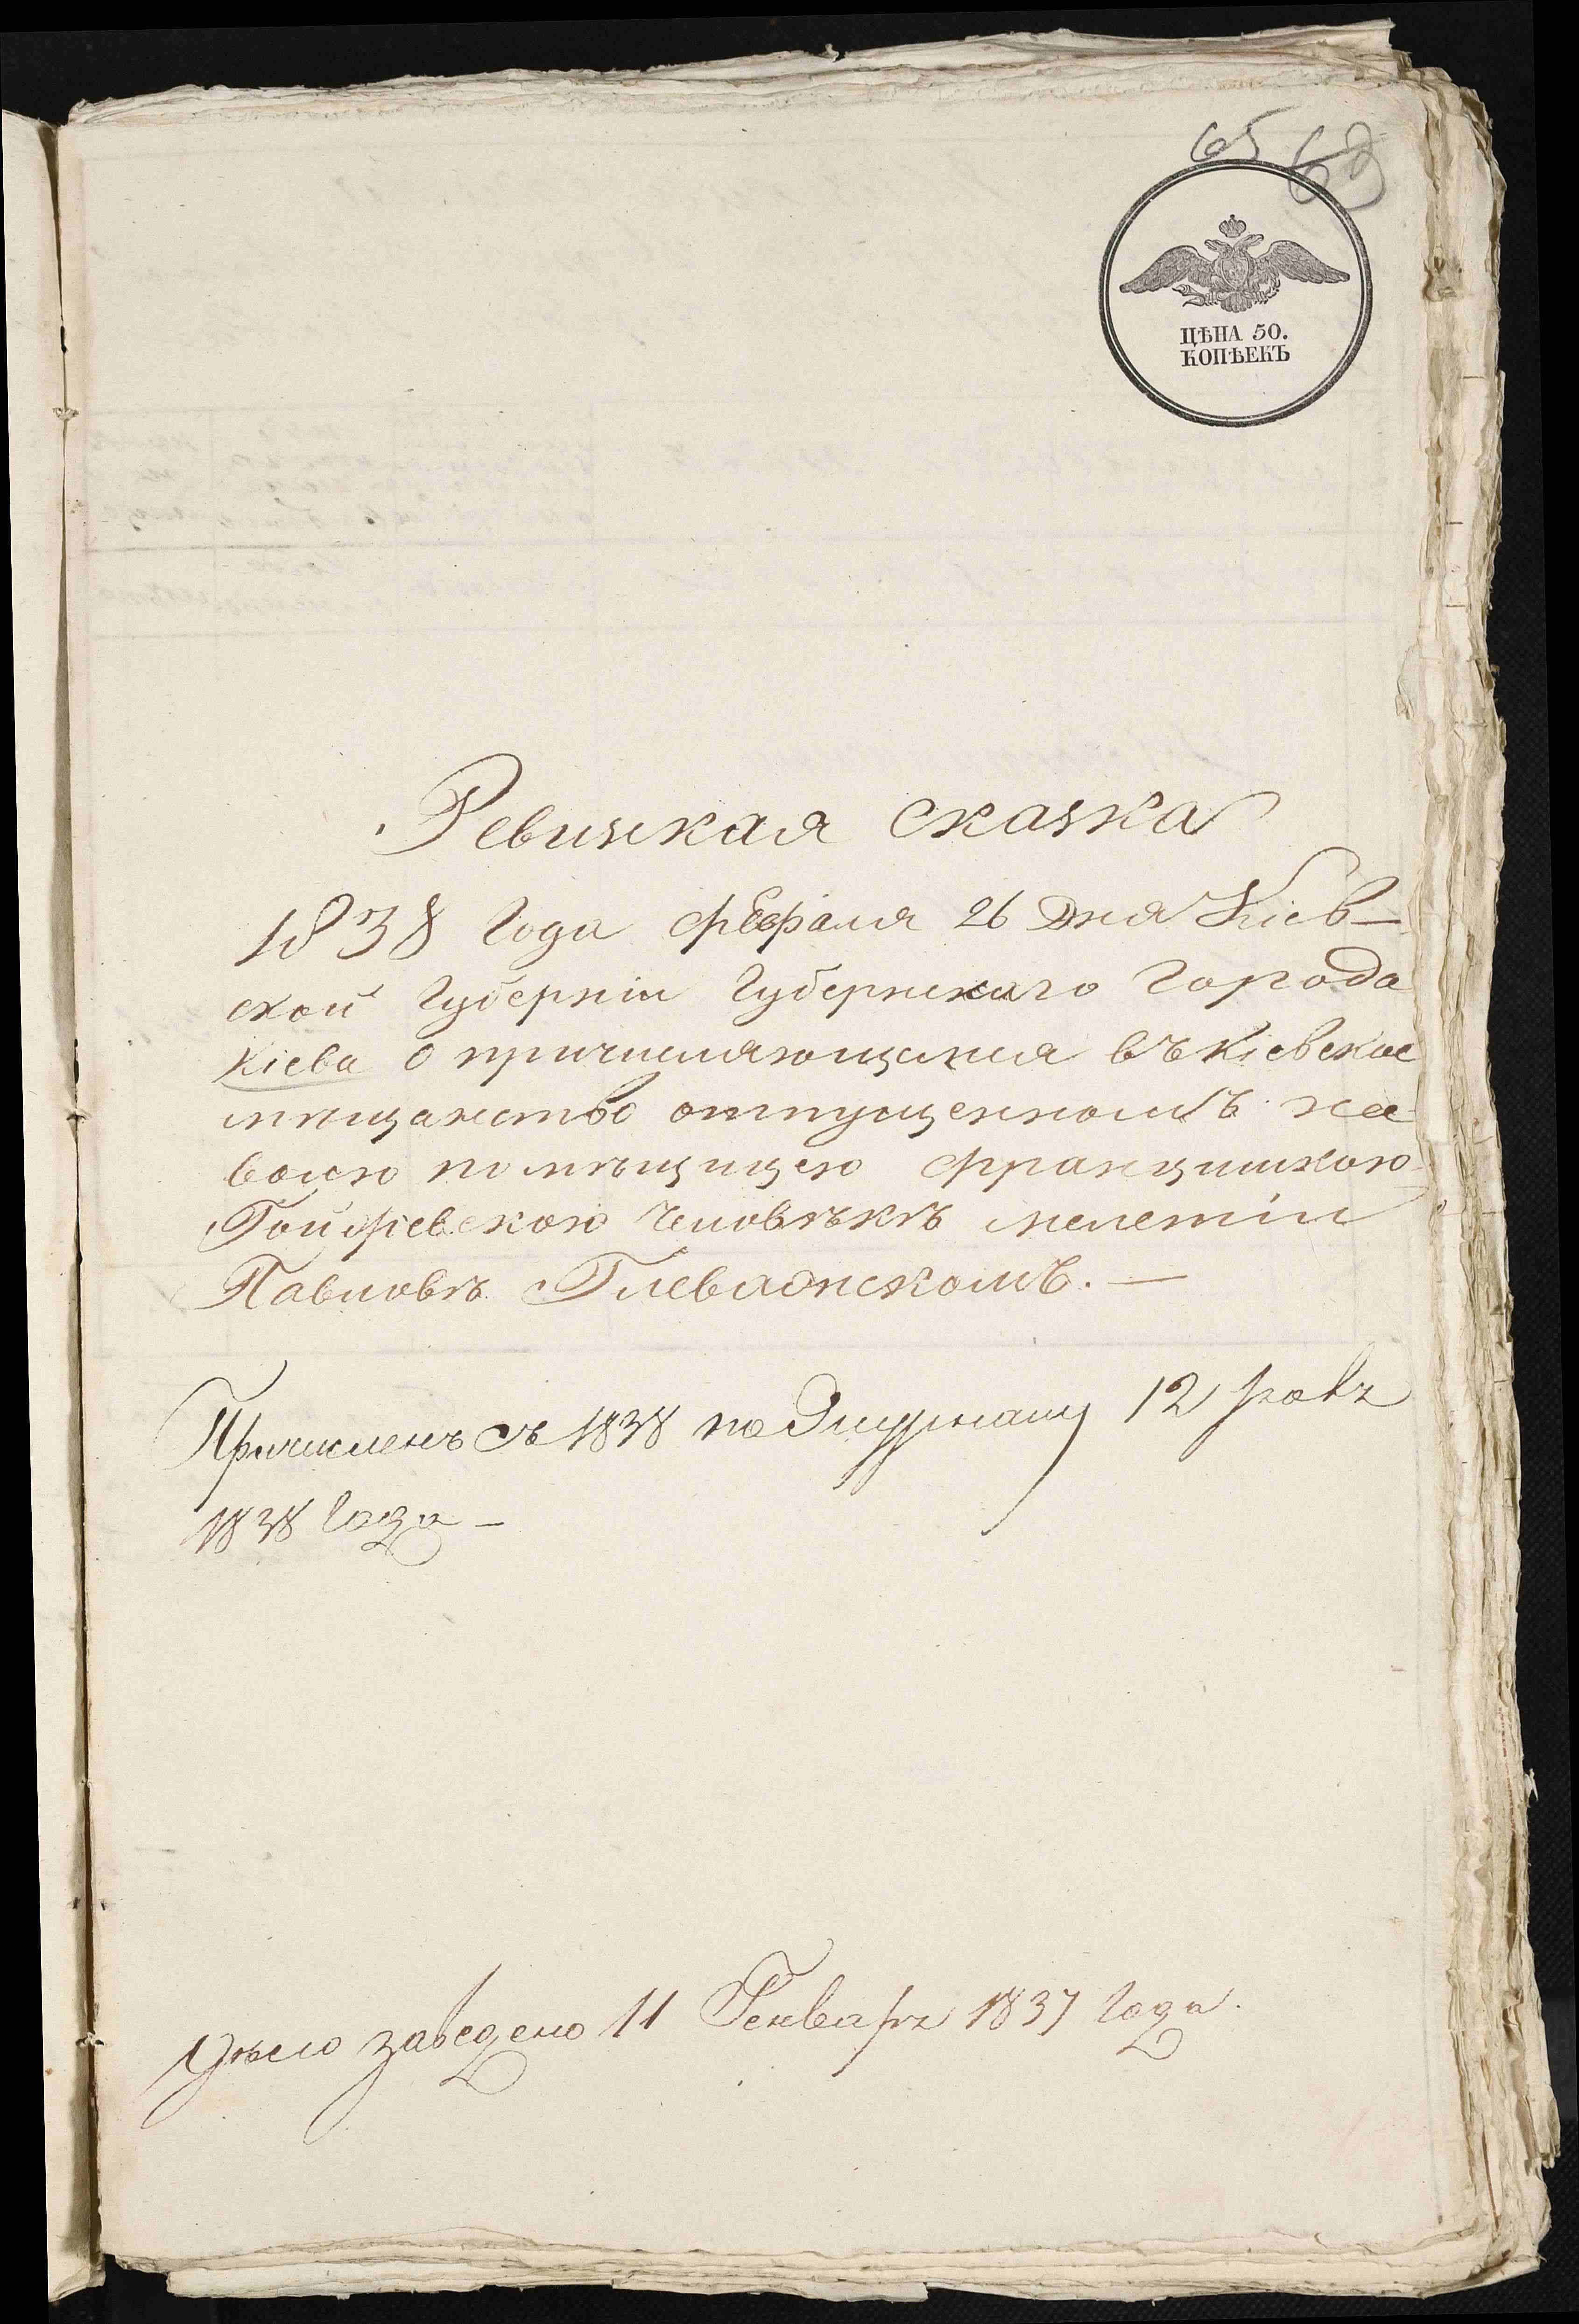 65 63
ЦѢНА 50.
КОПѢЕКЪ
Ревизкая сказка
1838 года февраля 26 дня Кіев-
ской Губерніи Губернскаго города
Кіева о причисляющемся въ кіевское
мѣщанство отпущенномъ на
волю помѣщицею францишкою
человѣкѣ мелетіи
Павловѣ Глеваднскомъ. —
Причисленъ съ 1838 по 12
1838 года —
Дѣло заведено 11 Генваря 1837 года.